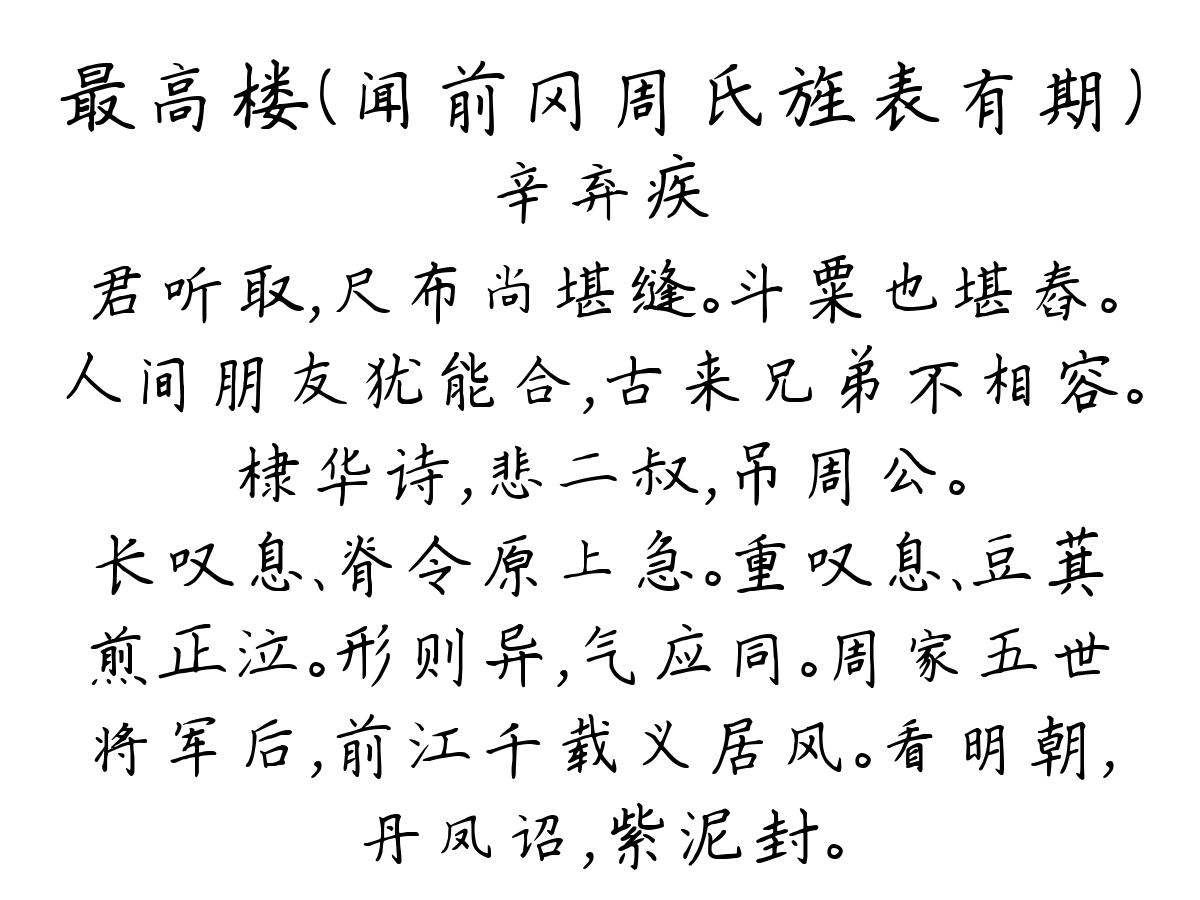 最高楼(闻前冈周氏旌表有期)
辛弃疾
君听取,尺布尚堪缝。斗粟也堪舂。
人间朋友犹能合,古来兄弟不相容。
棣华诗,悲二叔,吊周公。
长叹息、脊令原上急。重叹息、豆萁
煎正泣。形则异,气应同。周家五世
将军后,前江千载义居风。看明朝,
丹凤诏,紫泥封。